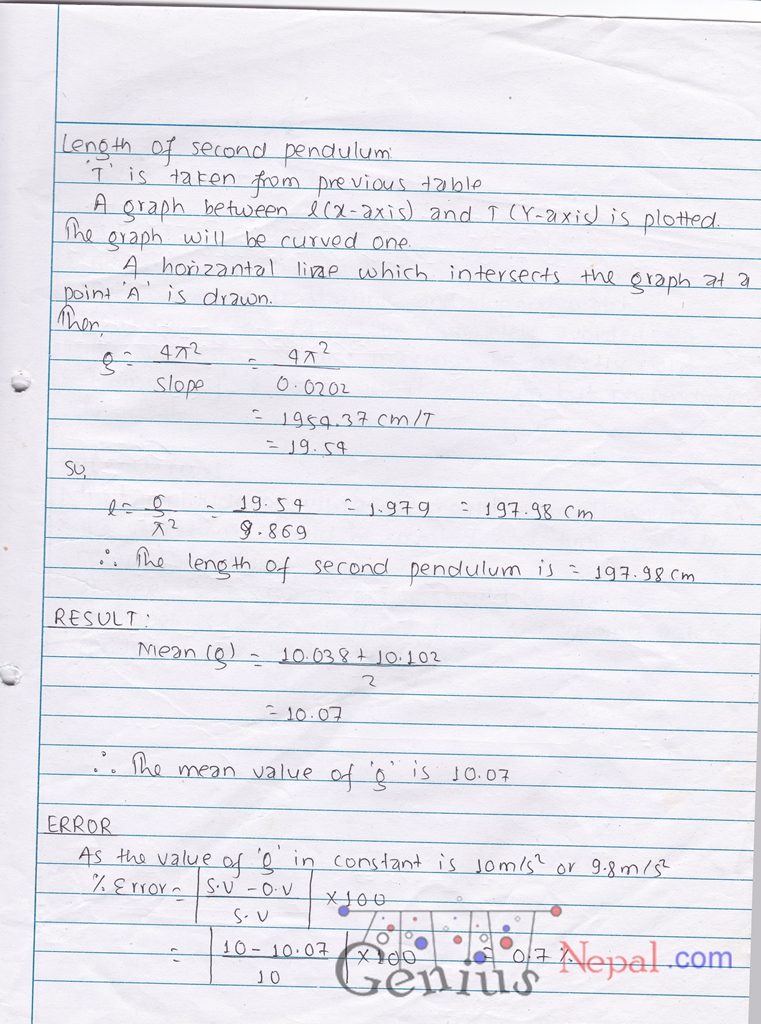 Length of second pendulum:
'T' is taken from previous table
A graph between l(x-axis) and T (Y-axis) is plotted.
The graph will be curved one.
A horizantal line which intersects the graph at a
point 'A' is drawn.
Then,
g = 4π² / slope = 4π² / 0.0202
= 1954.37 cm/T
= 19.54
So,
l = g / π² = 19.54 / 9.869 = 1.979 = 197.98 cm
∴ The length of second pendulum is = 197.98 cm
RESULT:
Mean (g) = 10.038 + 10.102 / 2
= 10.07
∴ The mean value of 'g' is 10.07
ERROR
As the value of 'g' in constant is 10m/s² or 9.8m/s²
% Error = | S.V - O.V / S.V | × 100
= | 10 - 10.07 / 10 | × 100 = 0.7 %
Genius Nepal.com